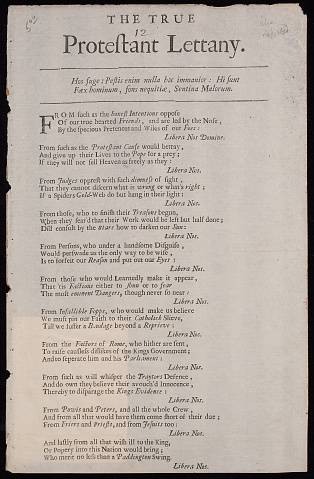 THE TRUE
12
Protestant Lettany.
Hos fuge: Pestis enim nulla hac immanior: Hi sunt
Fæx hominum, fons nequitiæ, Sentina Malorum.
FROM such as the honest Intentions oppose
Of our true hearted Friends, and are led by the Nose,
By the specious Pretences and Wiles of our Foes:
Libera Nos Domine.
From such as the Protestant Cause would betray,
And give up their Lives to the Pope for a prey;
If they will not sell Heaven as freely as they:
Libera Nos.
From Judges opprest with such dimness of sight,
That they cannot discern what is wrong or what's right;
If a Spiders Web do but hang in their light:
Libera Nos.
From those, who to finish their Treasons begun,
When they fear'd that their Work would be left but half done;
Did consult by the Stars how to darken our Sun:
Libera Nos.
From Persons, who under a handsome Disguise,
Would perswade us the only way to be wise,
Is to forfeit our Reason and put out our Eyes:
Libera Nos.
From those who would Learnedly make it appear,
That 'tis Factious either to shun or to fear
The most eminent Dangers, though never so near:
Libera Nos.
From Infallible Fopps, who would make us believe
We must pin our Faith to their Catholick Sleeve,
Till we suffer a Bondage beyond a Reprieve:
Libera Nos.
From the Factors of Rome, who hither are sent,
To raise causless dislikes of the Kings Government;
And to seperate him and his Parliament:
Libera Nos.
From such as will whisper the Traytors Defence,
And do own they believe their avouch'd Innocence,
Thereby to disparage the Kings Evidence:
Libera Nos.
From Powis and Peters, and all the whole Crew,
And from all that would have them come short of their due;
From Friers and Priests, and from Jesuits too:
Libera Nos.
And lastly from all that wish ill to the King,
Or Popery into this Nation would bring;
Who merit no less than a Paddington Swing.
Libera Nos.